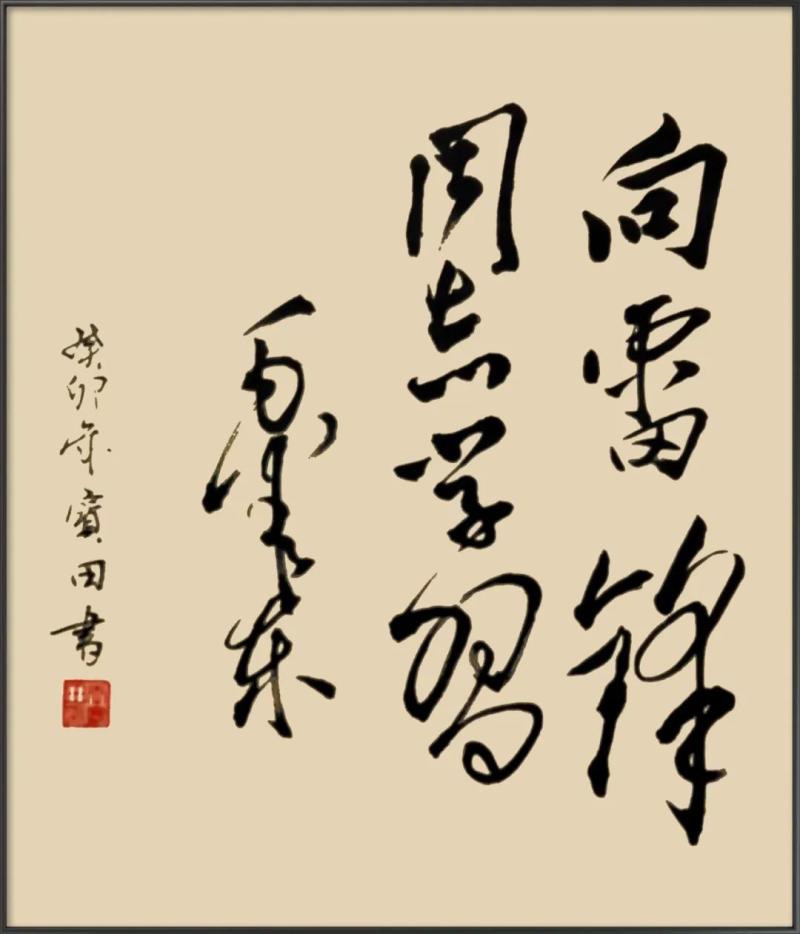 向雷锋
同志学习
毛泽东
癸卯年寶田书